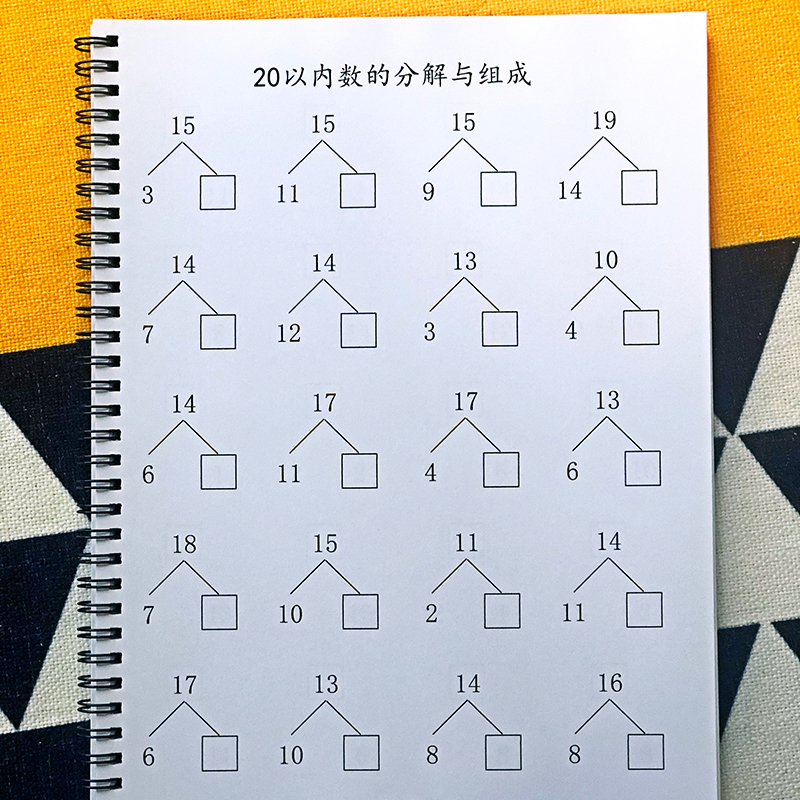 20以内数的分解与组成
15 15 15 19
3 11 9 14
14 14 13 10
7 12 3 4
14 17 17 13
6 11 4 6
18 15 11 14
7 10 2 11
17 13 14 16
6 10 8 8